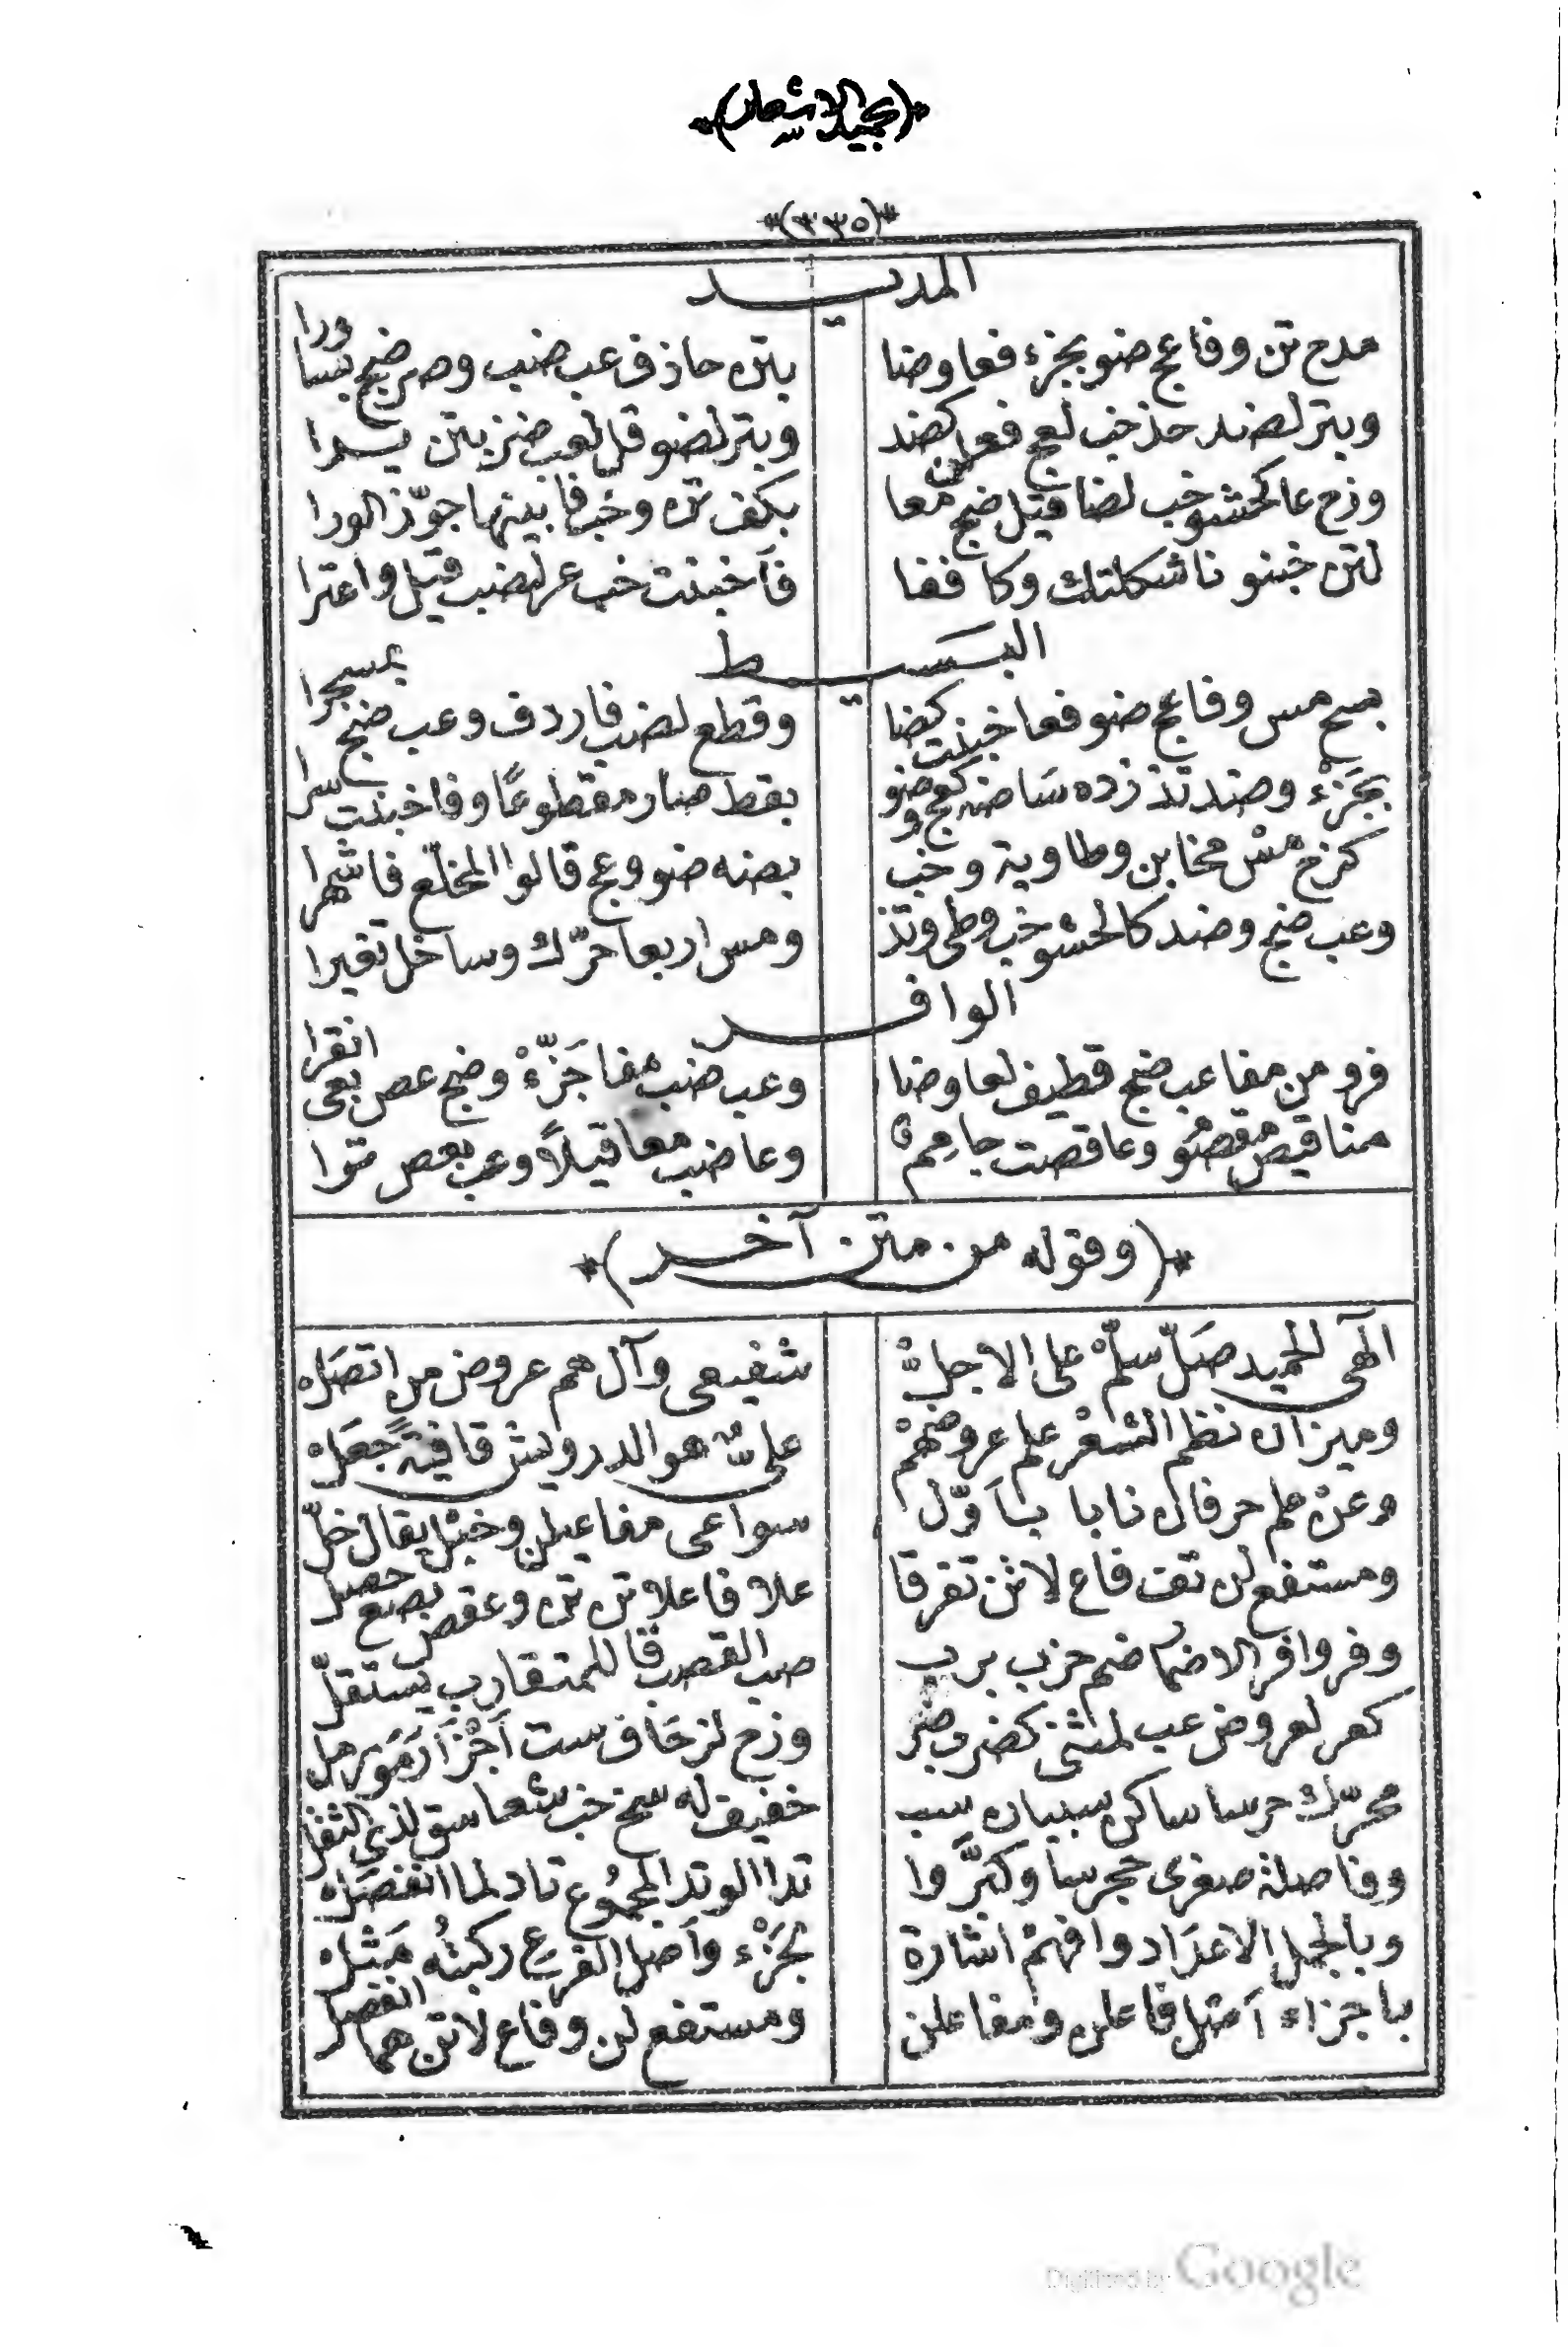 *(٣٣٥)*
المديد
مدح تن وفا عج ضنو بجزء فعا وضا بتن حاذف عب ضنب وصر ضج بسا ورا
وبتر لضند حذ خب لعج فعلن كضند وبتر لضنو قل لعب ضنز بتن يسرا
وزح عا كحشو خب لضا قيل ضج معا بكف تن وخب فا بينها جوّز الورا
لتن خبنو نا شكلتك وكا ففا فآخبنت خب عر لضنب قيل واعترا
البسيط
بسح مس وفا عج ضنو فعا خبنت كضا وقطع لضنب فاردف وعب ضج
بجَزْء وضند تذ زده سَا ضنه كعج وضنو بقط صار مقطوعًا وفا خبنت سرا
كزح مسْ مخابن وطاوية وخب بضنه ضنو وعج قالوا المخلّع فاشهرا
وعب ضج وضند كالحشو خب وطى وتذ ومس اربعا حرّك وساخل تقيرا
الوافر
فرو من مفا عب ضج قطيف لعا وضا وعب ضنب مفا جَزّءْ وضج عصر بعى انقرا
وعا ضنب معا قيلاً وعب بعصر
*(وقوله من متن آخر)*
الٓهى الحميد صَلّ سلّمْ على الاجل شفيعى وآل هم عروض من اتصَله
وميزان نظم الشعْر علم عروضهمْ على هو الدرويش قافيةً جعَله
وعنْ علم حرفان نابا باَوّل سواعى مفاعيلن وخبْل يقال خلّ
ومستفع لن تفت فاع لاتن تفرقا علا فاعلاتن تن وعقص بصع حصل
وفر وافر الاضما ضم خرب برب صب القصب قا للمتقارب يستقلّ
كعر لعروض عب لمثنى كضرب ضر وزح لزحَاف ست اَجْزآ رَمَوز مل
محرّك حرسا ساكن سببان سب خفيف له سخ خب شعا سق لذى الثقل
وفاصلة صغرى حجرسا وكبّروا تدا الوتد المجموع تاد لما انفصَله
وبالجمل الاعدَاد وافهمْ اشارة بجَزْء وآصل الفرع ركبتُه مَثله
باجزاء آمثل فاعلن ومفاعلن ومستفع لن وفاع لاتن هما انفصل
Digitized by Google